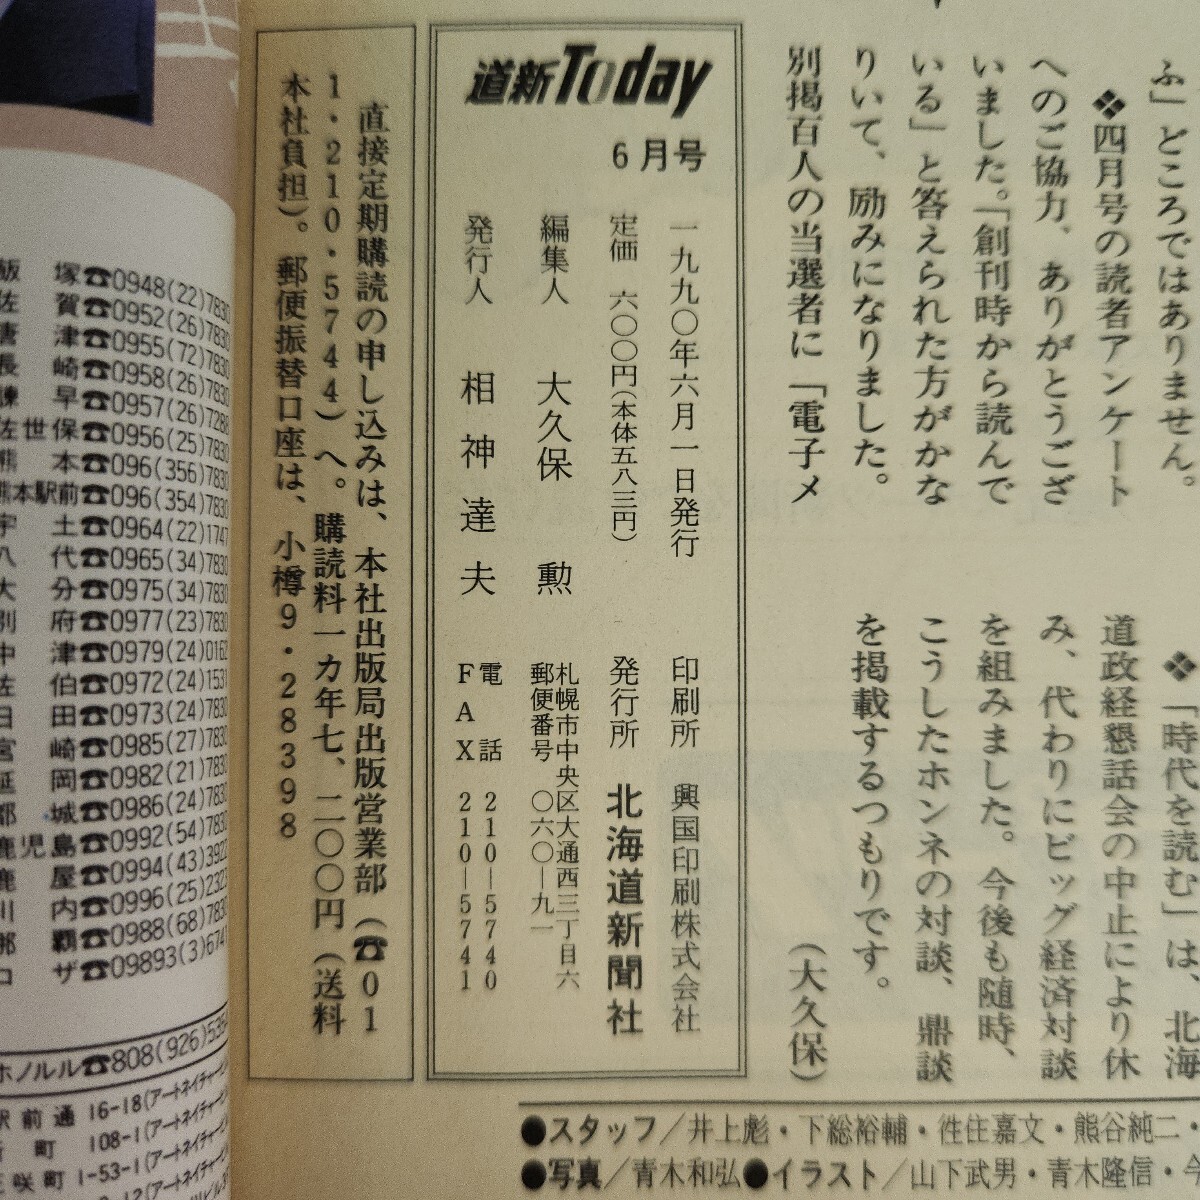 ふ」どころではありません。
❖四月号の読者アンケート
へのご協力、ありがとうござ
いました。「創刊時から読んで
いる」と答えられた方がかな
りいて、励みになりました。
別掲百人の当選者に「電子メ
❖「時代を読む」は、北海
道政経懇話会の中止により休
み、代わりにビッグ経済対談
を組みました。今後も随時、
こうしたホンネの対談、鼎談
を掲載するつもりです。
（大久保）
道新Today
6月号
一九九〇年六月一日発行
定価 六〇〇円（本体五八三円）
編集人 大久保 勲
発行人 相神達夫
印刷所 興国印刷株式会社
発行所 北海道新聞社
札幌市中央区大通西三丁目六
郵便番号 〇六〇—九一
電話 210—5740
FAX 210—5741
直接定期購読の申し込みは、本社出版局出版営業部（☎01
1・210・5744）へ。購読料一カ年七、二〇〇円（送料
本社負担）。郵便振替口座は、小樽9・28398
●スタッフ／井上彪・下総裕輔・徃住嘉文・熊谷純二・
●写真／青木和弘●イラスト／山下武男・青木隆信・今
飯塚☎0948(22)7830
佐賀☎0952(26)7830
唐津☎0955(72)7830
長崎☎0958(26)7830
諫早☎0957(26)7288
佐世保☎0956(25)7830
熊本☎096(356)7830
熊本駅前☎096(354)7830
宇土☎0964(22)1747
八代☎0965(34)7830
大分☎0975(34)7830
別府☎0977(23)7830
中津☎0979(24)0162
佐伯☎0972(24)1531
日田☎0973(24)7830
宮崎☎0985(27)7830
延岡☎0982(21)7830
都城☎0986(24)7830
鹿児島☎0992(54)7830
鹿屋☎0994(43)3922
川内☎0996(25)2323
那覇☎0988(68)7830
コザ☎09893(3)6741
ホノルル☎808(926)5354
駅前通 16-18(アートネイチャー
町 108-1(アートネイチャー
三咲町 1-53-1(アートネイチャー